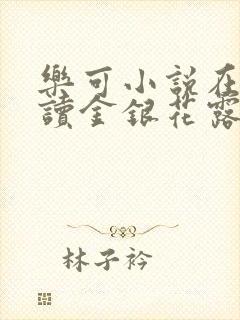 樂可小說在
讀金銀花露
林子衿